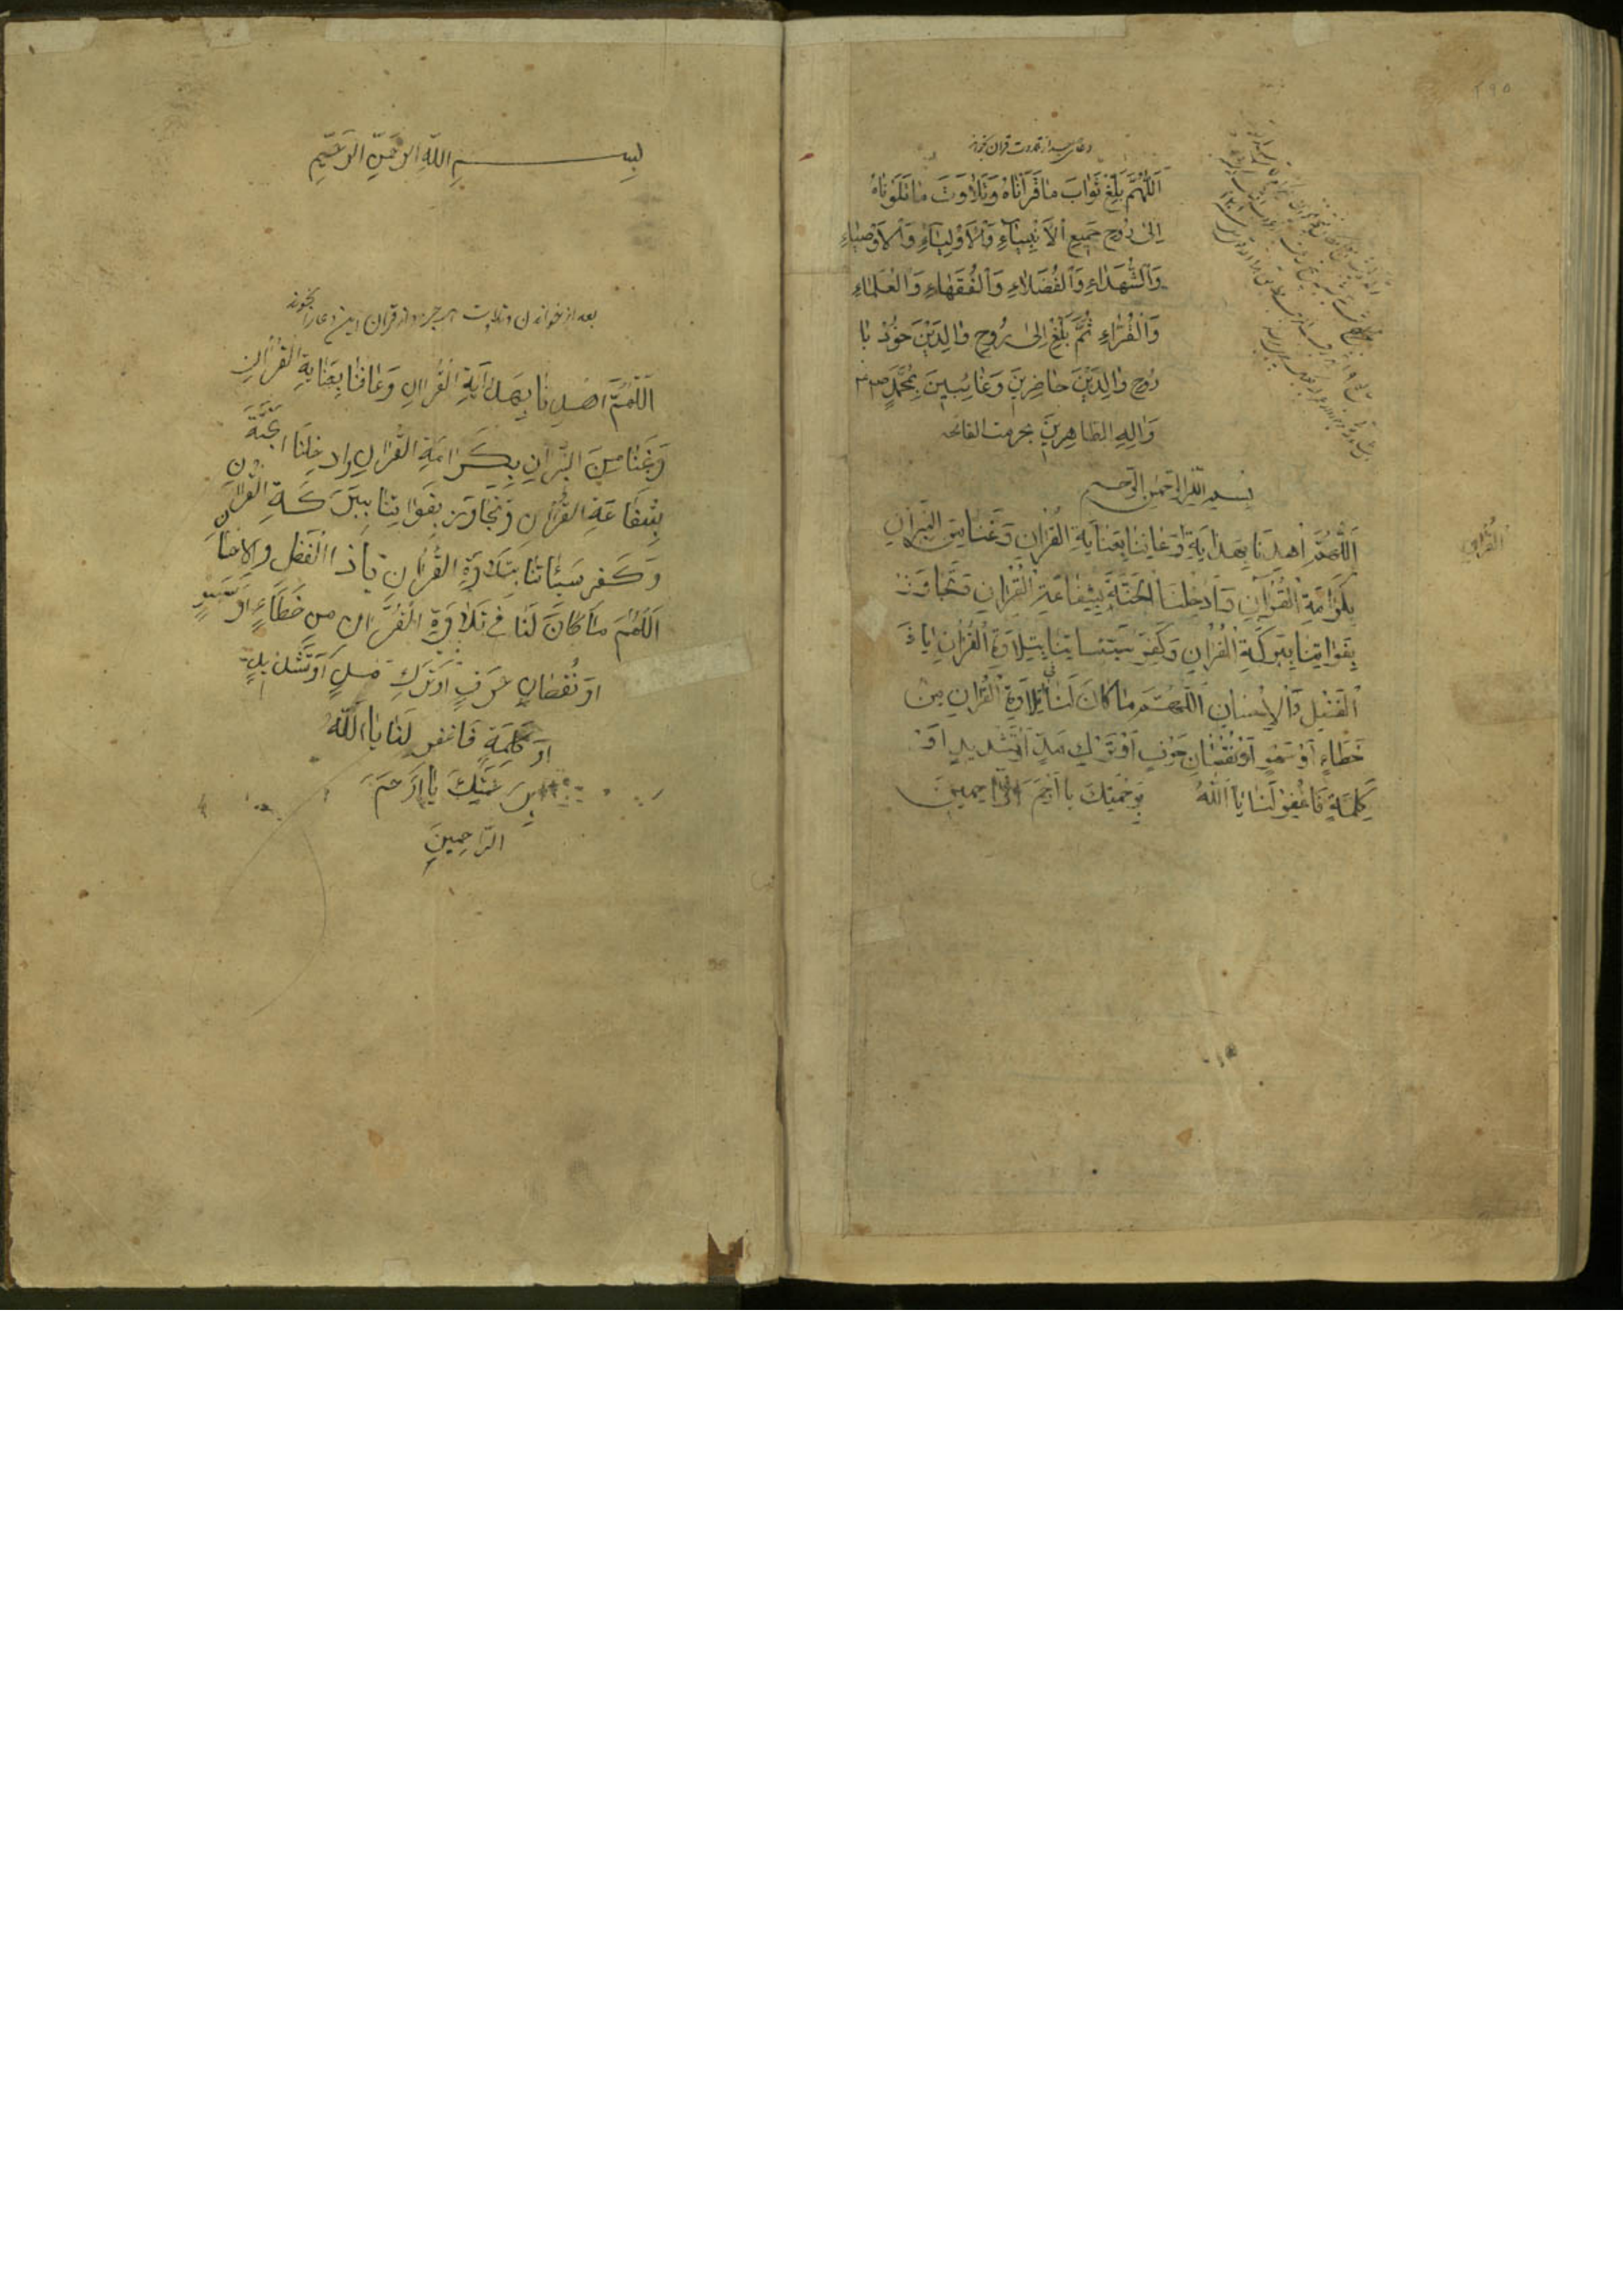 دعا بعد از تلاوت قرآن بخواند
اَللّٰهُمَّ بَلِّغْ ثَوٰابَ مٰا قَرَأْنٰاهُ وَتَلٰاوَتَ مٰا تَلَوْنٰاهُ
اِلٰى رُوحِ جَمِيعِ الْاَنْبِيٰاءِ وَالْاَوْلِيٰاءِ وَالْاَوْصِيٰاءِ
وَالشُّهَدٰاءِ وَالْفُضَلٰاءِ وَالْفُقَهٰاءِ وَالْعُلَمٰاءِ
وَالْقُرّٰاءِ ثُمَّ بَلِّغْ اِلٰى رُوحِ وٰالِدَيْنَ خود با
رُوحِ وٰالِدَيْنَ حٰاضِرِينَ وَغٰائِبِينَ بِمُحَمَّدٍ
وَاٰلِهِ الطاهِرِينَ بحرمت الفاتحه
بسم الله الرحمن الرحيم
اَللّٰهُمَّ اهْدِنَا بِهِدٰايَةِ وَعٰافِنٰا بِعِنٰايَةِ الْقُرْاٰنِ وَنَجِّنٰا مِنَ النِّيرٰانِ
القرآن
بِكَرٰامَةِ الْقُرْاٰنِ وَاَدْخِلْنَا الْجَنَّةَ بِشَفٰاعَةِ الْقُرْاٰنِ وَتَجٰاوَزْ
بِفَوٰاتِنٰا بِبَرَكَةِ الْقُرْاٰنِ وَكَفِّرْ سَيِّئٰاتِنٰا بِتِلٰاوَةِ الْقُرْاٰنِ يٰا ذَ
الْفَضْلِ وَالْاِحْسٰانِ اَللّٰهُمَّ مٰا كٰانَ لَنٰا فى تِلٰاوَةِ الْقُرْاٰنِ مِنْ
خَطٰاءٍ اَوْ سَهْوٍ اَوْ نُقْصٰانِ حَرْفٍ اَوْ تَرْكِ مَدٍّ اَوْ تَشْدِيدٍ اَوْ
كَلِمَةٍ فَاغْفِرْ لَنٰا يٰا اَللّٰهُ بِرَحْمَتِكَ يٰا اَرْحَمَ الرّٰاحِمِينَ
بِسْمِ اللّٰهِ الرَّحْمٰنِ الرَّحِيمِ
بعد از خواندن و تلاوت هر جزو از قرآن این دعا را بخوند
اَللّٰهُمَّ اهْدِنٰا بِهِدٰايَةِ الْقُرْاٰنِ وَعٰافِنٰا بِعِنٰايَةِ الْقُرْاٰنِ
وَنَجِّنٰا مِنَ النِّيرٰانِ بِكَرٰامَةِ الْقُرْاٰنِ وَادْخِلْنَا الْجَنَّةَ
بِشَفٰاعَةِ الْقُرْاٰنِ وَتَجٰاوَزْ بِفَوٰاتِنٰا بِبَرَكَةِ الْقُرْاٰنِ
وَكَفِّرْ سَيِّئٰاتِنٰا بِتِلٰاوَةِ الْقُرْاٰنِ يٰا ذَا الْفَضْلِ وَالْاِحْسٰانِ
اَللّٰهُمَّ مٰا كٰانَ لَنٰا فِي تِلٰاوَةِ الْقُرْاٰنِ مِنْ خَطٰاءٍ اَوْ سَهْوٍ
اَوْ نُقْصٰانِ حَرْفٍ اَوْ تَرْكِ مَدٍّ اَوْ تَشْدِيدٍ
اَوْ كَلِمَةٍ فَاغْفِرْ لَنٰا يٰا اَللّٰهُ
بِرَحْمَتِكَ يٰا اَرْحَمَ
الرّٰاحِمِينَ